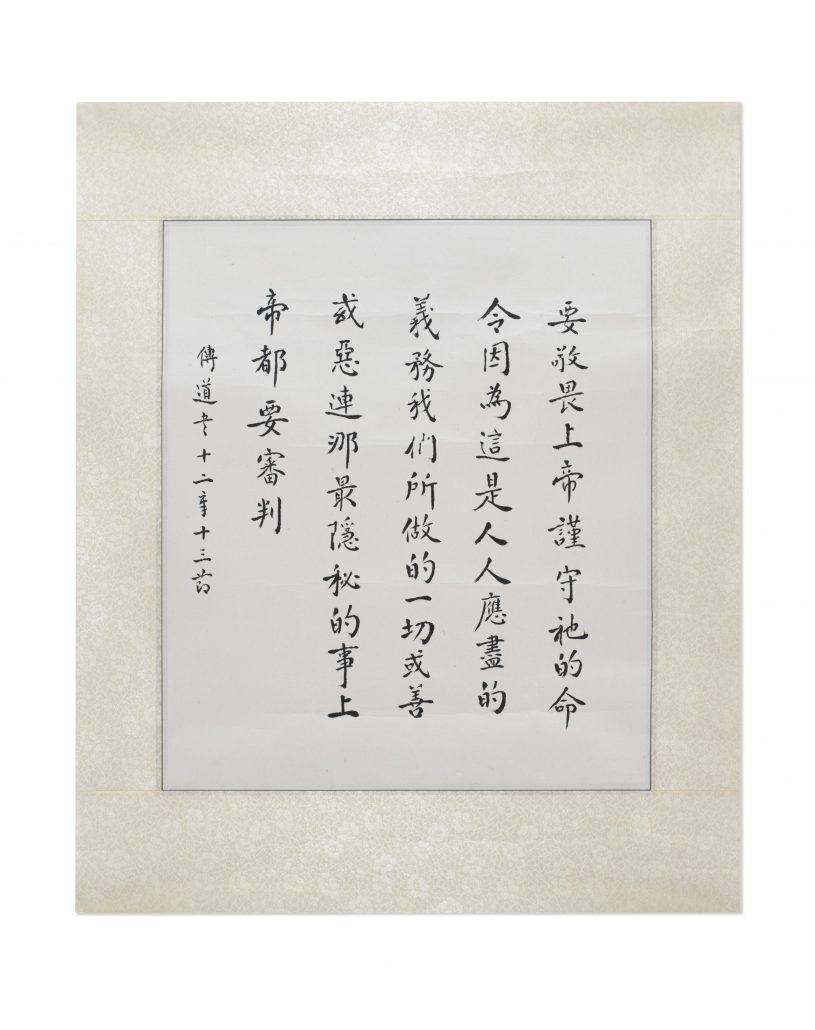 要敬畏上帝謹守祂的命
令因為這是人人應盡的
義務我們所做的一切或善
或惡連那最隱秘的事上
帝都要審判
傳道書十二章十三節